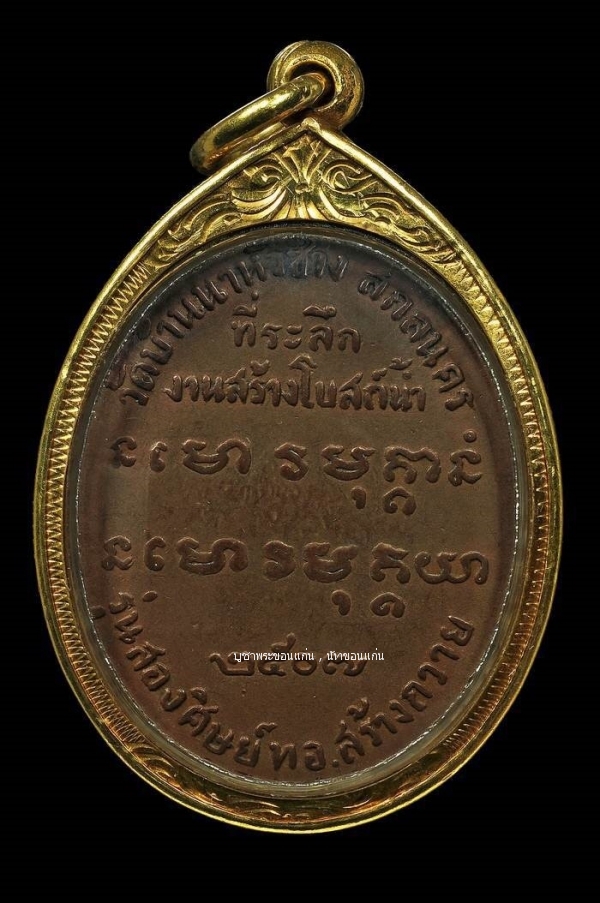 วัดบ้านนาหัวช้าง สกลนคร
ที่ระลึก
งานสร้างโบสถ์น้ำ
๒๕๐๗
บูชาพระขอนแก่น , น้าขอนแก่น
รุ่นสองศิษย์ทอ.สร้างถวาย